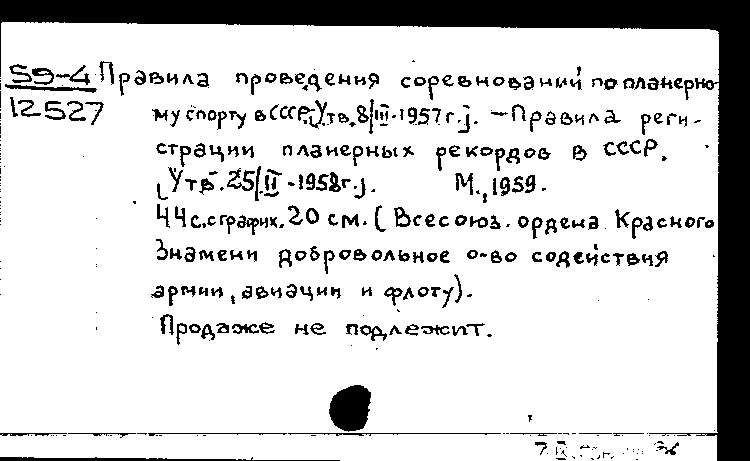 59-4 Правила проведения соревнований по планерно-
12527 му спорту в СССР. [Утв. 8/III-1957г.]. - Правила реги-
страции планерных рекордов в СССР.
[Утв. 25/II-1958г.]. М., 1959.
44с. с график. 20 см. (Всесоюз. ордена Красного
Знамени добровольное о-во содействия
армии, авиации и флоту).
Продаже не подлежит.